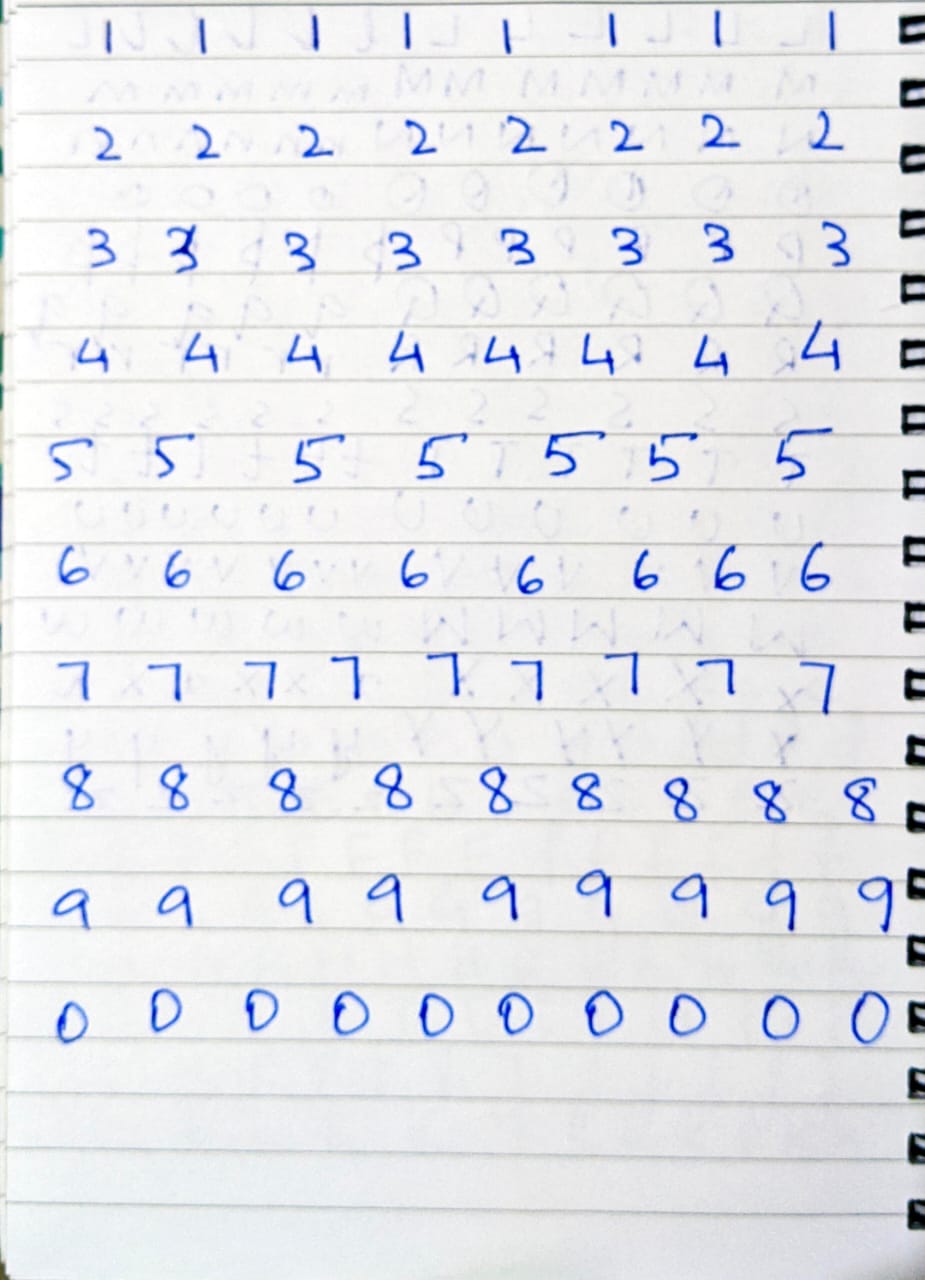 1 1 1 1 1 1 1 1
2 2 2 2 2 2 2 2
3 3 3 3 3 3 3 3
4 4 4 4 4 4 4 4
5 5 5 5 5 5 5
6 6 6 6 6 6 6 6
7 7 7 7 7 7 7 7 7
8 8 8 8 8 8 8 8 8
9 9 9 9 9 9 9 9 9
0 0 0 0 0 0 0 0 0 0